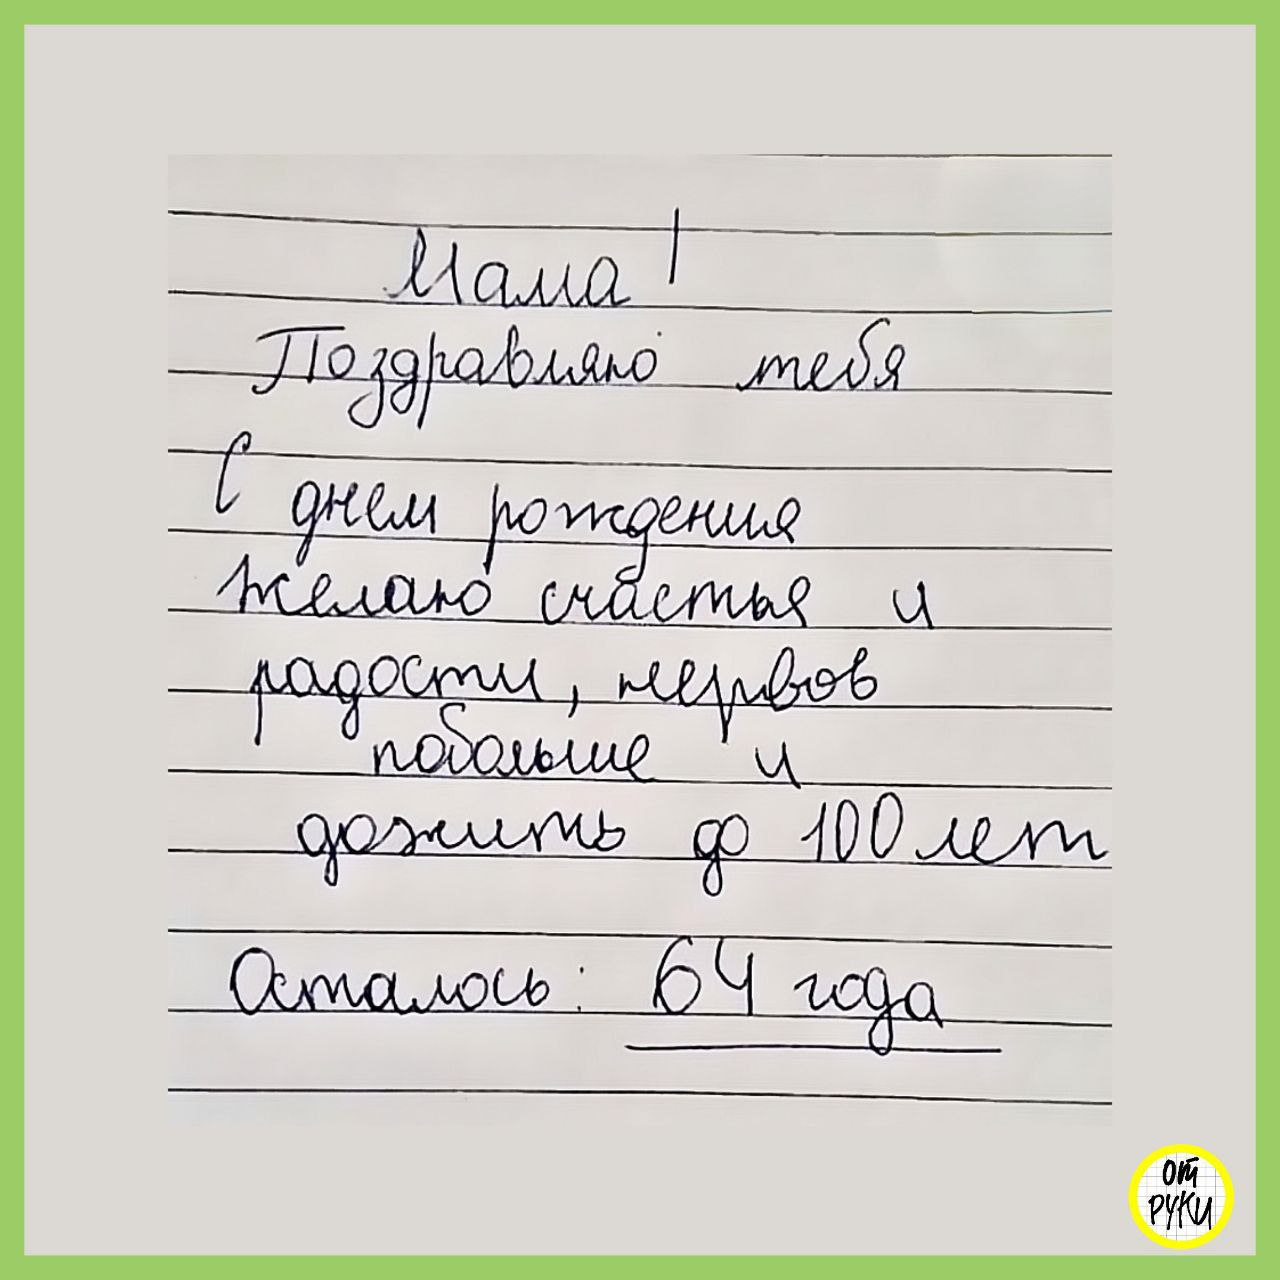 Мама!
Поздравляю тебя
С днем рождения
желаю счастья и
радости, нервов
побольше и
дожить до 100 лет
Осталось: 64 года
ОТ
РУКИ